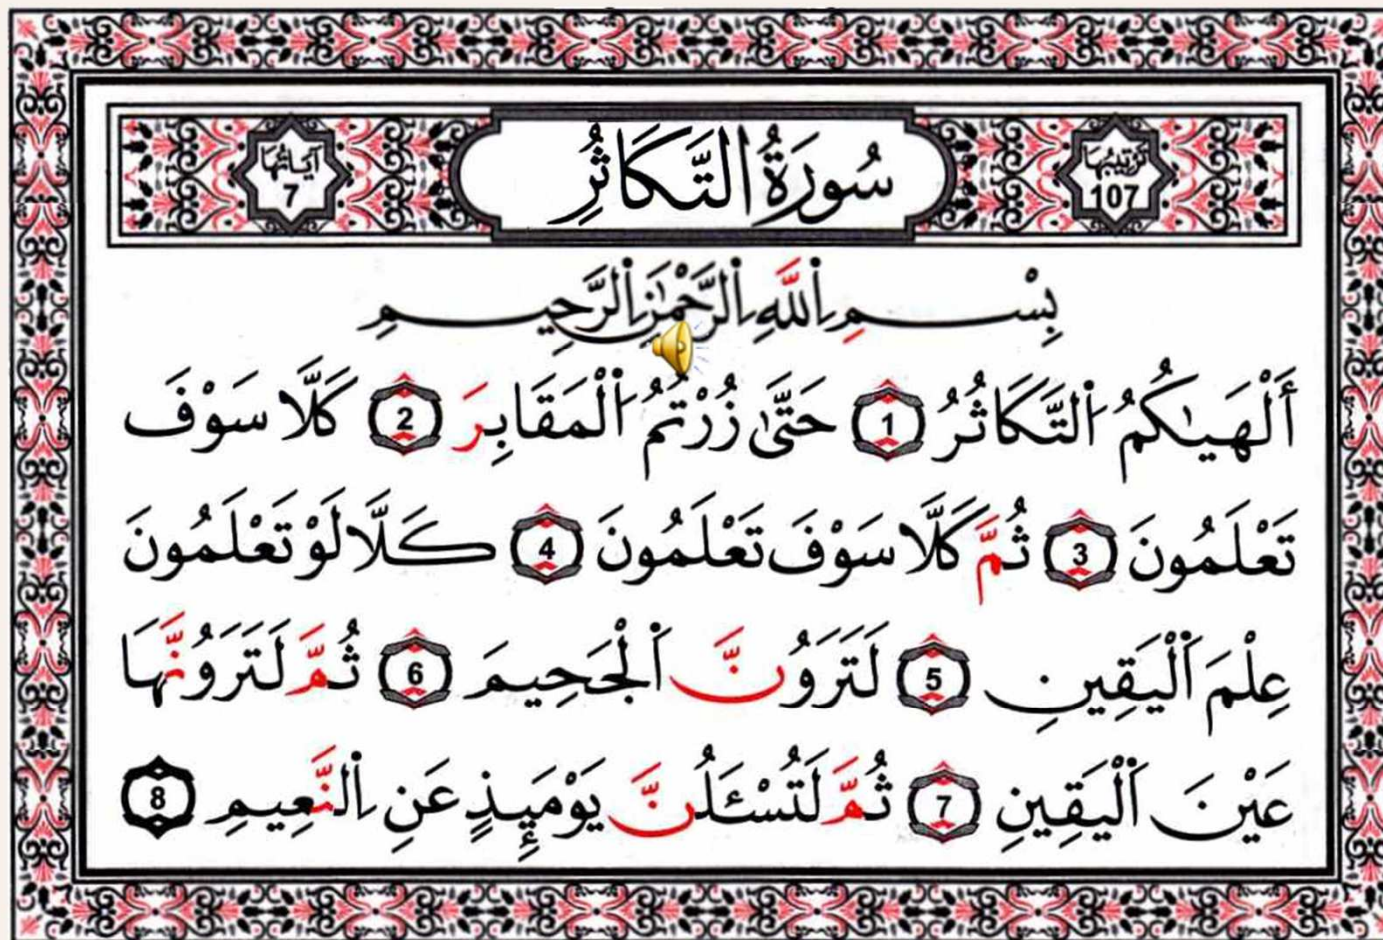 تَرْتِيبُهَا 107
سُورَةُ التَّكَاثُرِ
آيَاتُهَا 7
بِسْمِ اِ۬للَّهِ اِ۬لرَّحْمَٰنِ اِ۬لرَّحِيمِ
أَلْهَيٰكُمُ اُ۬لتَّكَاثُرُ 1 حَتَّىٰ زُرْتُمُ اُ۬لْمَقَابِرَ 2 كَلَّا سَوْفَ
تَعْلَمُونَ 3 ثُمَّ كَلَّا سَوْفَ تَعْلَمُونَ 4 كَلَّا لَوْ تَعْلَمُونَ
عِلْمَ اَ۬لْيَقِينِ 5 لَتَرَوُنَّ اَ۬لْجَحِيمَ 6 ثُمَّ لَتَرَوُنَّهَا
عَيْنَ اَ۬لْيَقِينِ 7 ثُمَّ لَتُسْـَٔلُنَّ يَوْمَئِذٍ عَنِ اِ۬لنَّعِيمِ 8